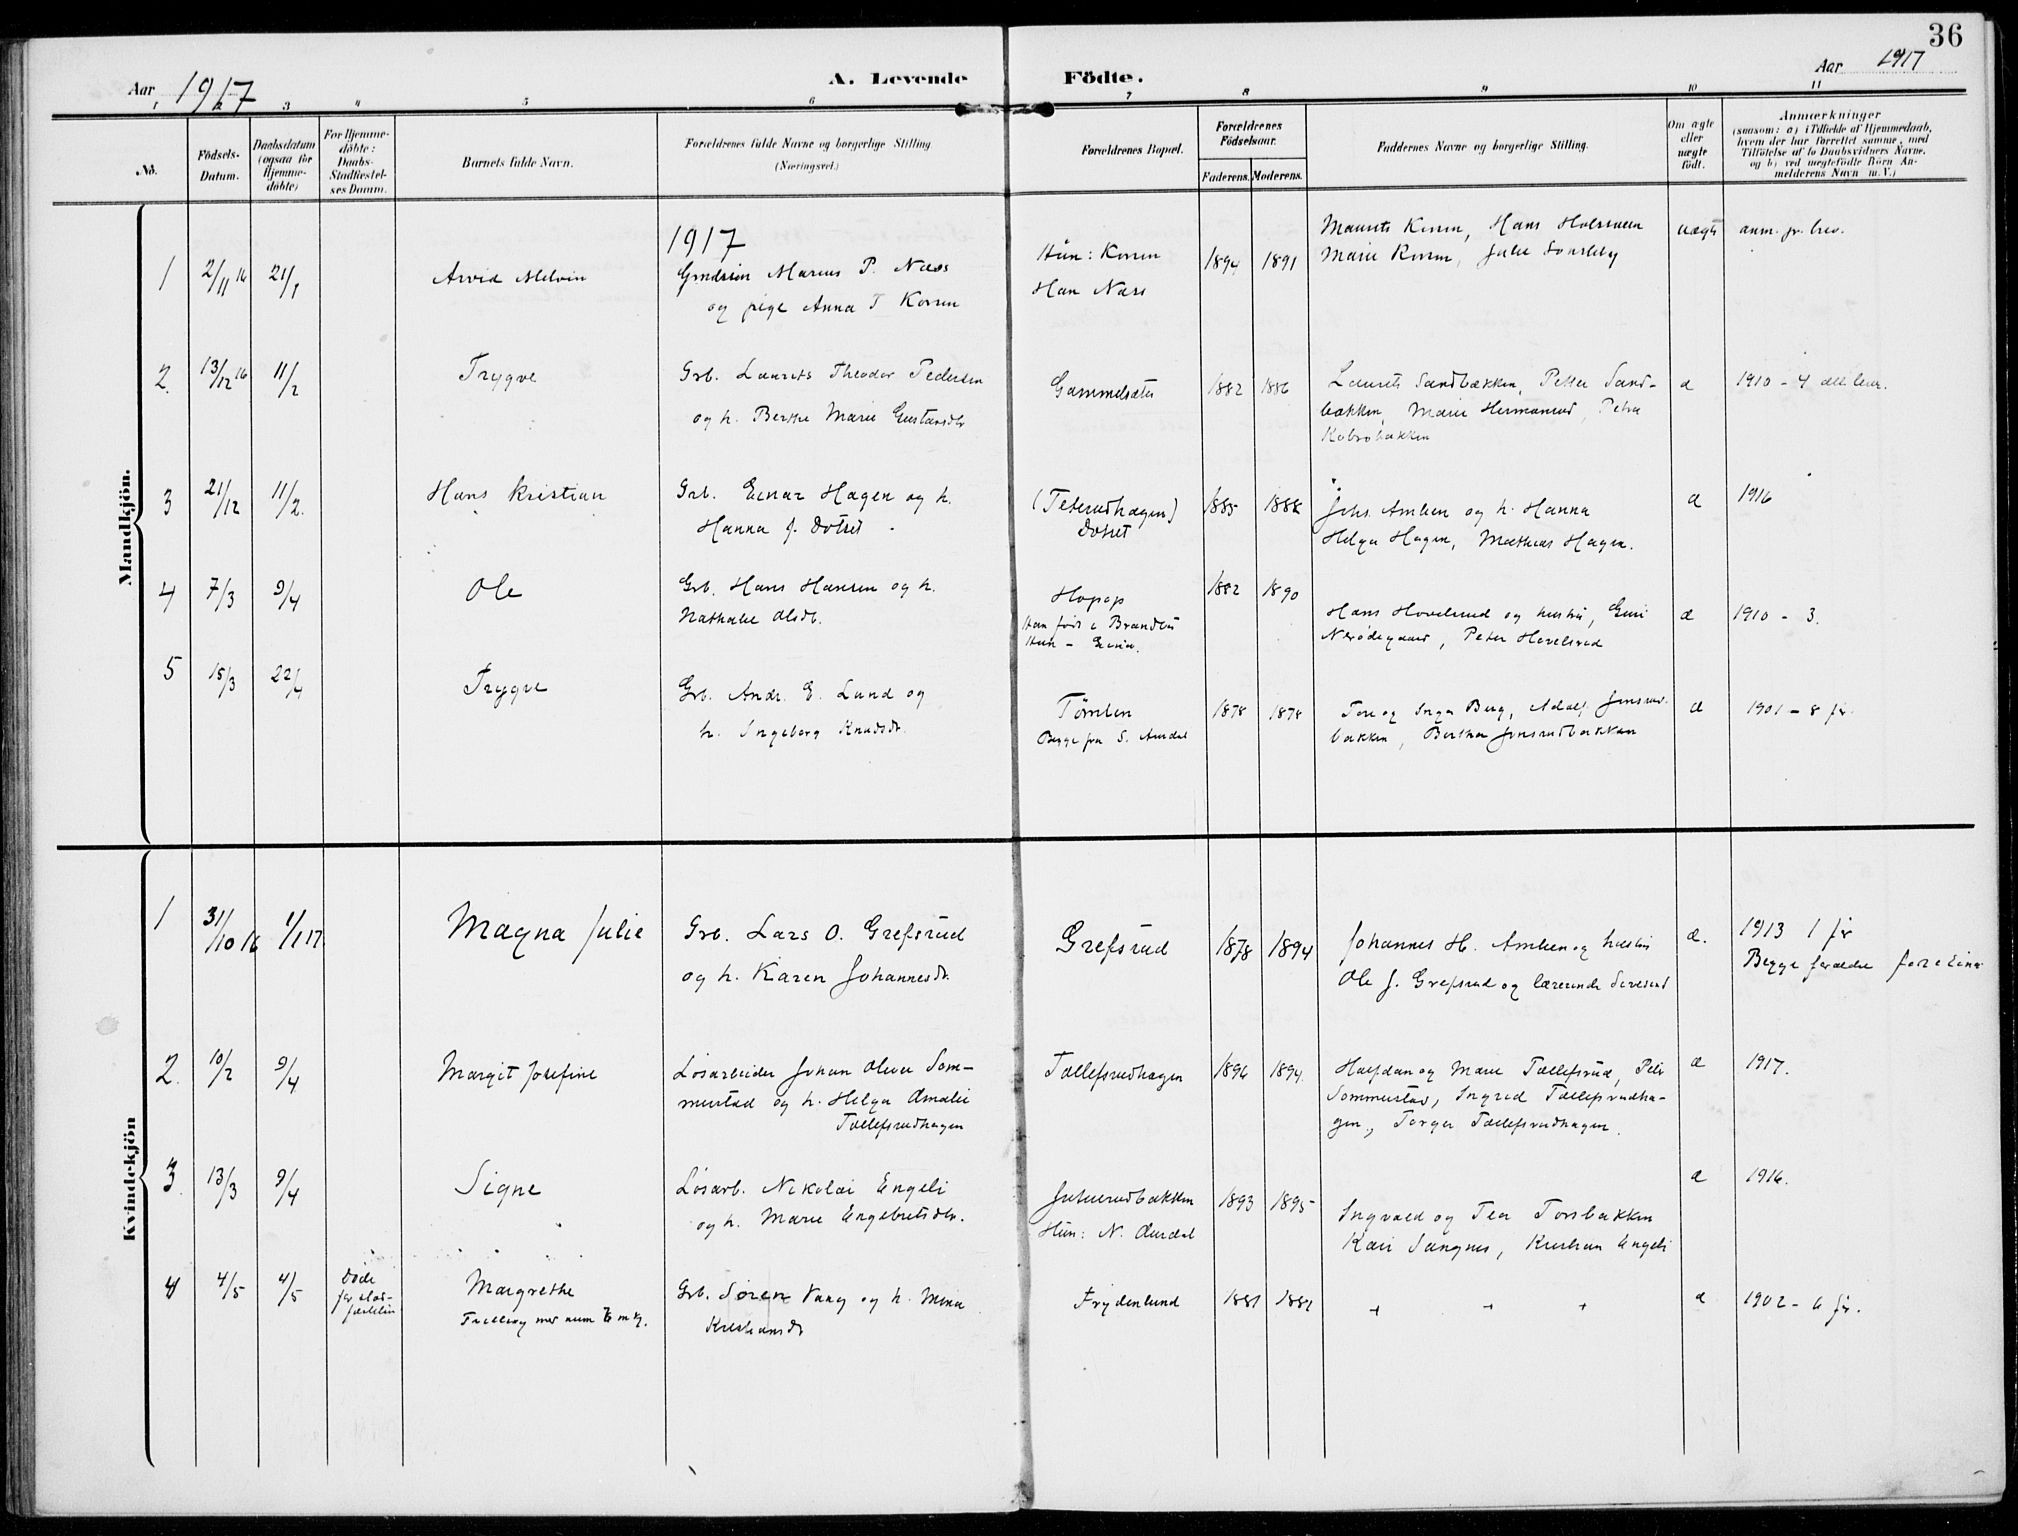 36
Aar 1917
A. Levende Födte.
Aar 1917
1 2 3 4 5 6 7 8 9 10 11
No.
Födsels-
Datum.
Daabsdatum
(ogsaa for
Hjemme-
döbte)
For Hjemme-
döbte:
Daabs-
Stadfæstel-
ses Datum.
Barnets fulde Navn.
Forældrenes fulde Navne og borgerlige Stilling
(Næringsvei.)
Forældrenes Bopæl.
Forældrenes
Födselsaar.
Faderens. Moderens.
Faddernes Navne og borgerlige Stilling.
Om ægte
eller
uægte
födt.
Anmærkninger
(saasom: a) i Tilfælde af Hjemmedaab,
hvem der har forrettet samme, med
Tilföielse af to Daabsvidners Navne,
og b) ved uegtefödte Börn An-
melderens Navn m. V.)
Mandkjön.
1917
1 2/11 16 21/1
Arvid Melvin
Marius P. Næss
og pige Anna T Korsen
Hun:
Han Næss
1894 1891
Hans
Marie
uægte
anm. pr. brev.
2. 13/12 16 11/2
Trygve
Grb. Laurits Theodor Pedersen
og h. Berthe Marie Gustavsdtr
Gammelsæter
1882 1886
Laurits Sandbækken, Petter Sand-
bækken, Marie Hermansrud, Petra
æ
1910 - 4 alle lever.
3 21/12 11/2.
Hans Kristian
Grb. Einar Hagen og h.
Hanna J. Dotset
(Teterudhagen)
Dotset
1885 1888
Johs. Amlien og h. Hanna
Helga Hagen, Mathias Hagen.
æ
1916
4 7/3 9/4
Ole
Grb. Hans Hansen og h.
Nathalie Olsdt.
Han født i Brandbu
Hun -
1882 1890
Hans Hovelsrud og hustru,
Peter Hovelsrud
æ
1910 - 3.
5 15/3 22/4
Trygve
Grb. Andr. E. Lund og
h. Ingeborg Knudsdt.
Tømten
Begge fra S. Aurdal
1878 1878
Tore og Inga Berg, Adolf Jensrud-
bakken, Berthe Jensrudbakken
æ
1901 - 8 før.
Kvindekjön
1 31/10 16 1/1 17
Magna Julie
Grb. Lars O. Grefsrud
og h. Karen Johannesdt.
Grefsrud
1878 1894
Johannes H. Amlien og hustru
Ole J. Grefsrud og lærerinde
æ.
1913 1 før
Begge forældre
2. 10/2 9/4
Margit Josefine
Løsarbeider Johan Oliver Som-
merstad og h. Helga Amalie
Tollefsrudhagen
Tollefsrudhagen
1896 1894.
Halfdan og Marie Tollefsrud,
Sommerstad, Ingrid Tollefsrudha-
gen, Torger Tollefsrudhagen.
æ
1917.
3. 13/3 9/4
Signe
Løsarb. Nikolai Engeli
og h. Marie Engebretsdtr.
Hun: N. Aurdal
1893 1895
Ingvald og Tea Torsbakken
Kari Sangnes, Kristian Engeli
æ
1916.
4 4/5 4/5
Døde
før stad-
fæstelsen
Margrethe
Tvilling med num
Grb. Søren Vang og h. Mina
Kristiansdt
Frydenlund
1881 1882
+ + +
æ
1902 - 6 før.